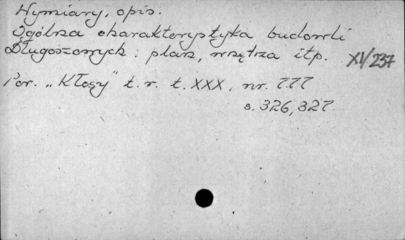 Wymiary, opis.
Ogólna charakterystyka budowli
Długoszowych: plan, wnętrza itp. XV/237
Por. "Kłosy" t. r. t. XXX, nr. 777
s. 326, 327